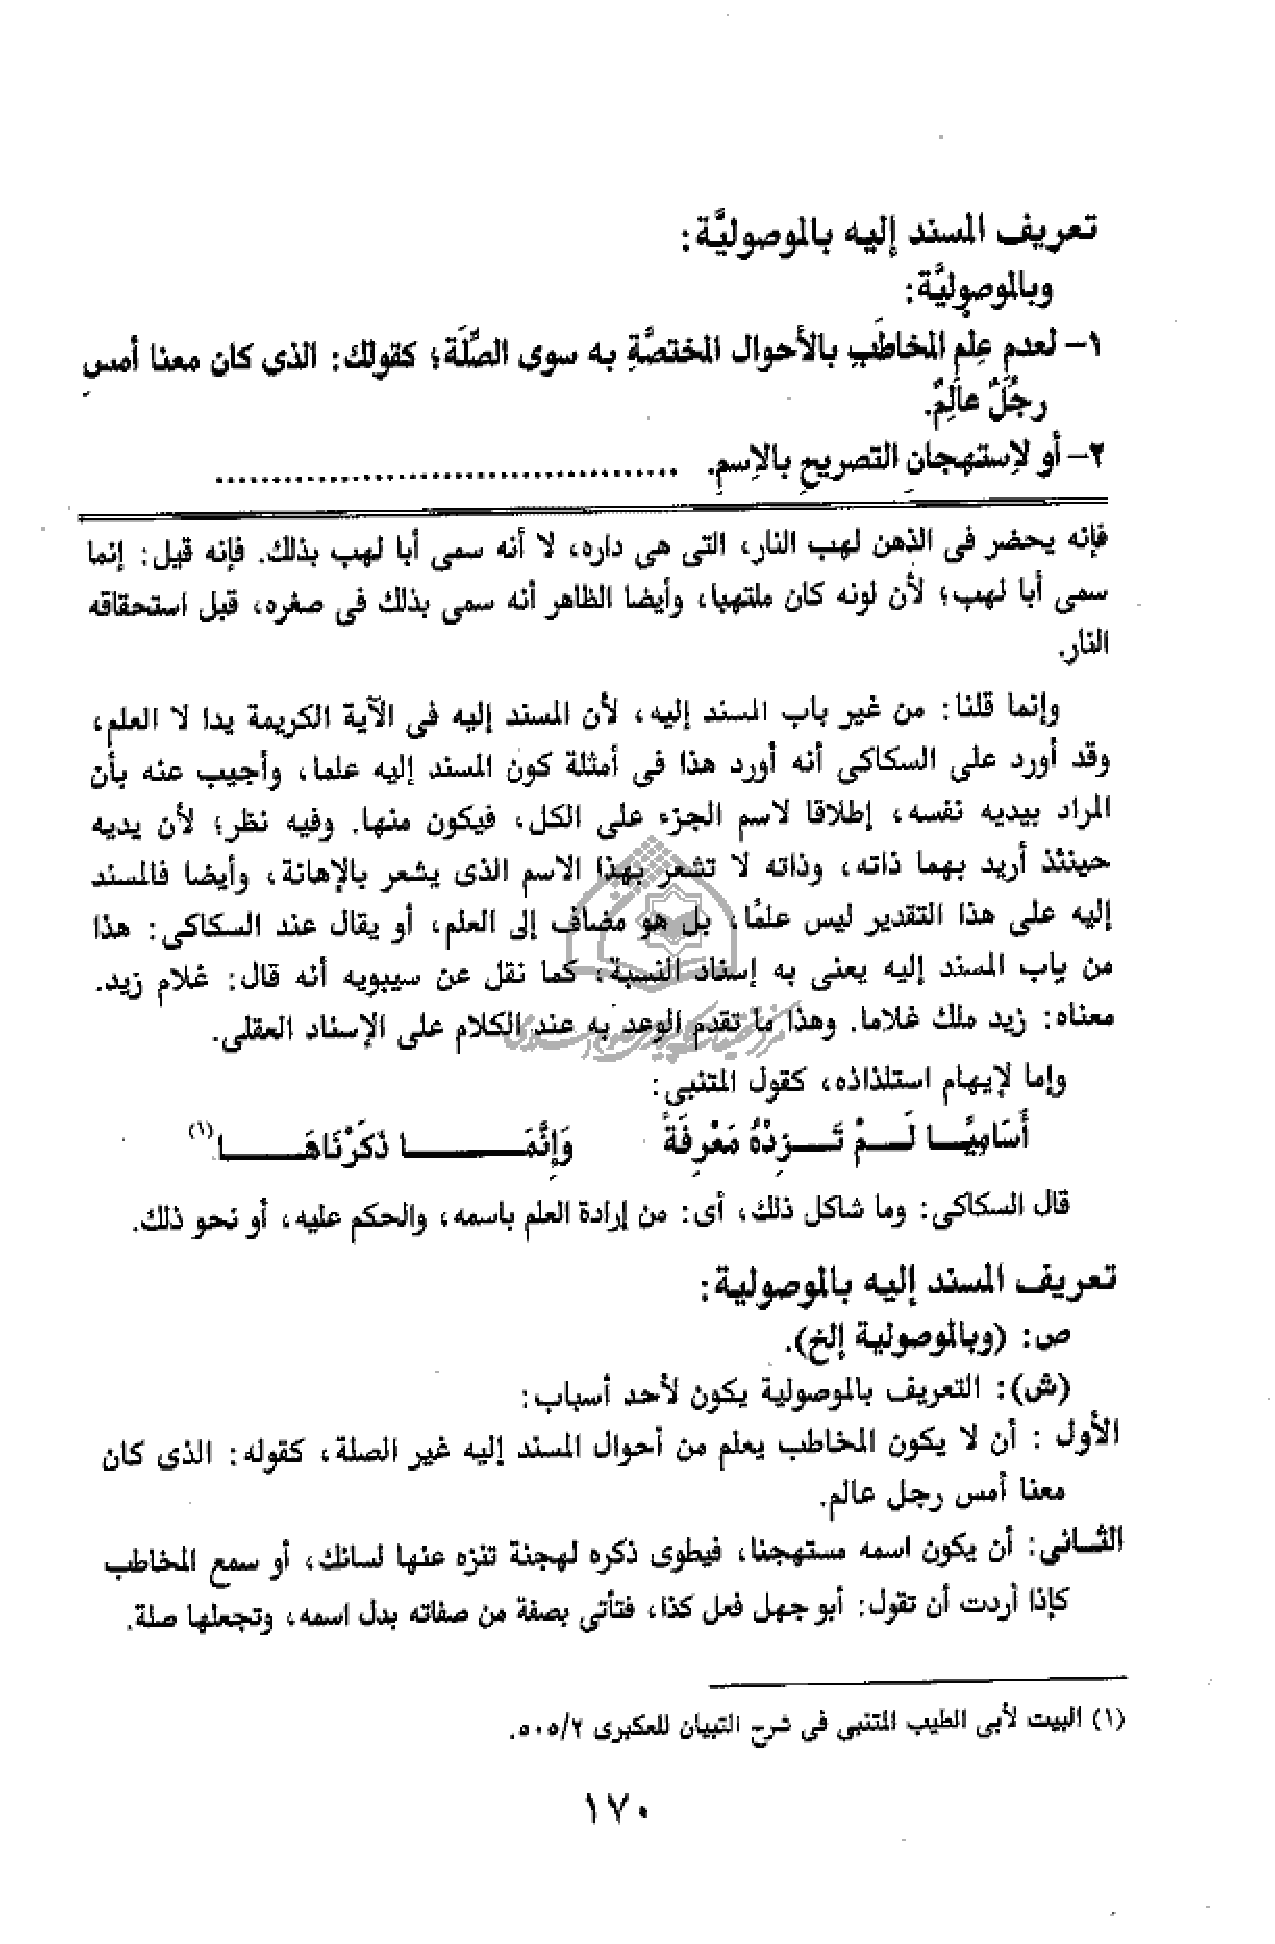 تعريف المسند إليه بالموصوليَّة:
وبالموصوليَّة:
١- لعدمِ عِلمِ المخاطَبِ بالأحوال المختصَّةِ به سوى الصِّلَة؛ كقولك: الذي كان معنا أمسِ
رجُلٌ عالِمٌ.
٢- أو لاِستهجانِ التصريحِ بالاِسمِ. ........................................
فإنه يحضر فى الذهن لهب النار، التى هى داره، لا أنه سمى أبا لهب بذلك. فإنه قيل: إنما
سمى أبا لهب؛ لأن لونه كان ملتهبا، وأيضا الظاهر أنه سمى بذلك فى صغره، قبل استحقاقه
النار.
وإنما قلنا: من غير باب المسند إليه، لأن المسند إليه فى الآية الكريمة يدا لا العلم،
وقد أورد على السكاكى أنه أورد هذا فى أمثلة كون المسند إليه علما، وأجيب عنه بأن
المراد بيديه نفسه، إطلاقا لاسم الجزء على الكل، فيكون منها. وفيه نظر؛ لأن يديه
حينئذ أريد بهما ذاته، وذاته لا تشعر بهذا الاسم الذى يشعر بالإهانة، وأيضا فالمسند
إليه على هذا التقدير ليس علمًا، بل هو مضاف إلى العلم، أو يقال عند السكاكى: هذا
من باب المسند إليه يعنى به إسناد النسبة؛ كما نقل عن سيبويه أنه قال: غلام زيد.
معناه: زيد ملك غلاما. وهذا ما تقدم الوعد به عند الكلام على الإسناد العقلى.
وإما لإيهام استلذاذه، كقول المتنبى:
أَسَامِيًّـــا لَـــمْ تَـــزِدْهُ مَعْرِفَةً وَإِنَّمَــــــا ذَكَرْنَاهَــــــا(١)
قال السكاكى: وما شاكل ذلك، أى: من إرادة العلم باسمه، والحكم عليه، أو نحو ذلك.
تعريف المسند إليه بالموصولية:
ص: (وبالموصولية إلخ).
(ش): التعريف بالموصولية يكون لأحد أسباب:
الأول : أن لا يكون المخاطب يعلم من أحوال المسند إليه غير الصلة، كقوله: الذى كان
معنا أمس رجل عالم.
الثـــانى: أن يكون اسمه مستهجنا، فيطوى ذكره لهجنة تنزه عنها لسانك، أو سمع المخاطب
كإذا أردت أن تقول: أبو جهل فعل كذا، فتأتى بصفة من صفاته بدل اسمه، وتجعلها صلة.
(١) البيت لأبى الطيب المتنبى فى شرح التبيان للعكبرى ٥٠٥/٢.
١٧٠